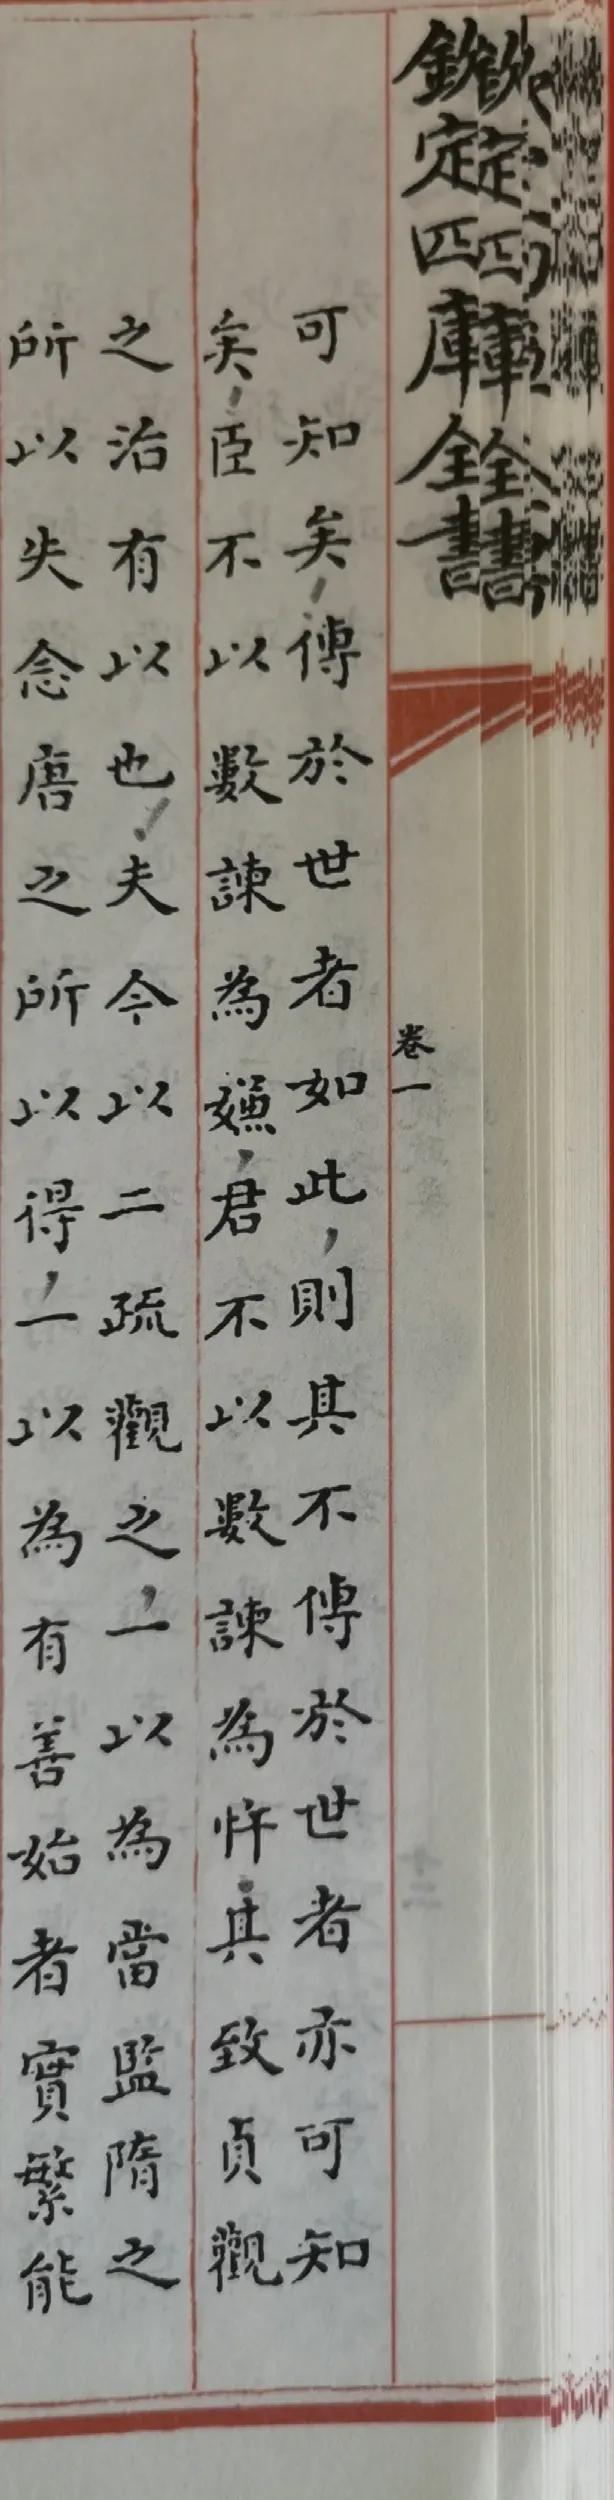 欽定四庫全書
卷一
可知矣,傳於世者如此,則其不傳於世者亦可知
矣,臣不以數諫為嫌,君不以數諫為忤。其致貞觀
之治有以也,夫今以二疏觀之,一以為當監隋之
所以失念唐之所以得,一以為有善始者實繁能